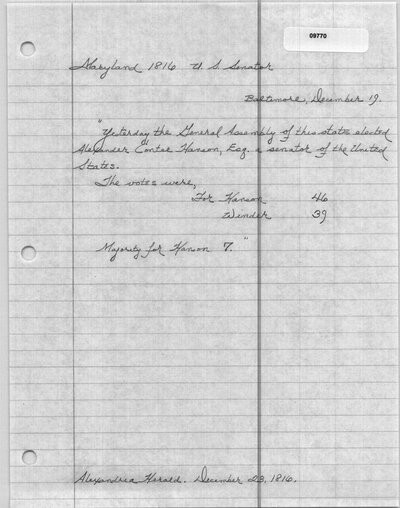 09770
Maryland 1816 U. S. Senator
Baltimore, December 19.
"Yesterday the General Assembly of this state elected
Alexander Contee Hanson, Esq. a senator of the United
States.
The votes were,
For Hanson 46
Winder 39
Majority for Hanson 7."
Alexandria Herald. December 23, 1816.